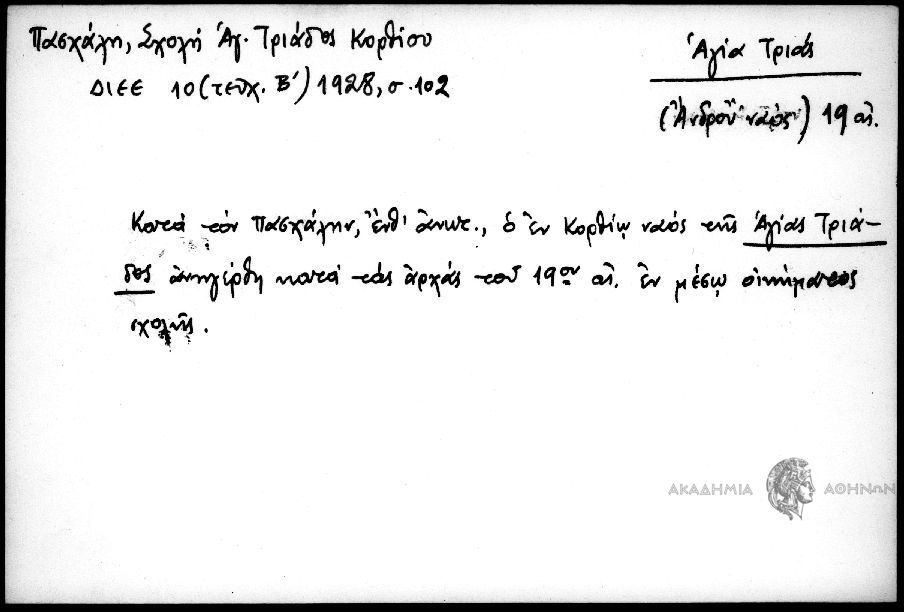 Πασχάλη, Σχολή Ἁγ. Τριάδος Κορθίου
ΔΙΕΕ 10 (τεῦχ. Β') 1928, σ. 102
Ἁγία Τριάς
(Ἄνδρου ναός) 19 αἰ.
Κατά τόν Πασχάλην, ἔνθ' ἄνωτ., ὁ ἐν Κορθίῳ ναός τῆς Ἁγίας Τριά-
δος ἀνηγέρθη κατά τάς ἀρχάς τοῦ 19ου αἰ. ἐν μέσῳ οἰκήματος
σχολῆς.
ΑΚΑΔΗΜΙΑ ΑΘΗΝΩΝ